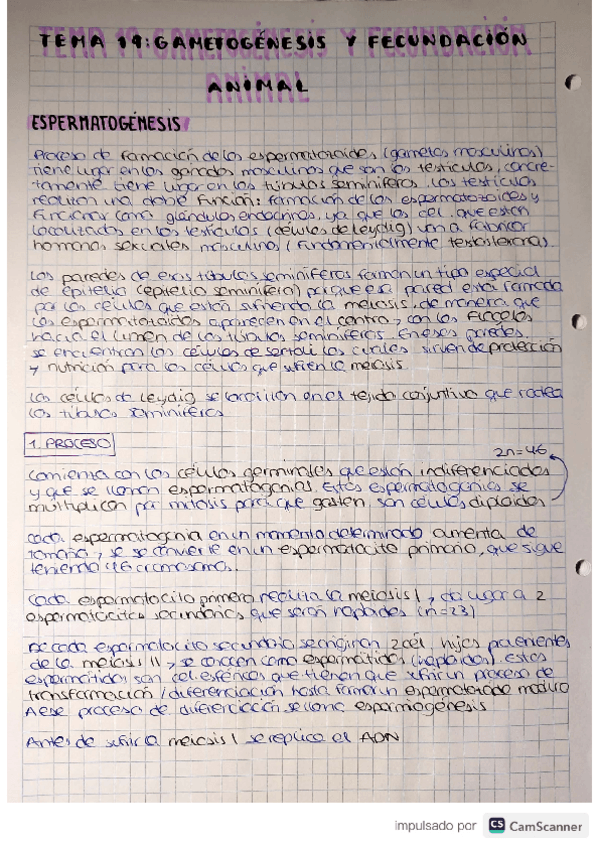 TEMA 19: GAMETOGÉNESIS Y FECUNDACIÓN
ANIMAL
ESPERMATOGÉNESIS
Proceso de formación de los espermatozoides (gametos masculinos)
tiene lugar en las gónadas masculinas que son los testículos, concre-
tamente tiene lugar en los túbulos seminíferos. Los testículos
realizan una doble función: formación de los espermatozoides y
funcionar como glándulas endocrinas, ya que las cel. que están
localizadas en los testículos (células de leydig) van a fabricar
hormonas sexuales masculinas (fundamentalmente testosterona).
Las paredes de esos túbulos seminíferos forman un tipo especial
de epitelio (epitelio seminífero) porque esa pared está formada
por las células que están sufriendo la meiosis, de manera que
los espermatozoides aparecen en el centro, con los flagelos
hacia el lumen de los túbulos seminíferos. En esas paredes
se encuentran las células de sertoli las cuales sirven de protección
y nutrición para las células que sufren la meiosis.
Las células de Leydig se localizan en el tejido conjuntivo que rodea
los túbulos seminíferos
1. PROCESO
2n=46
Comienza con las células germinales que están indiferenciadas
y que se llaman espermatogonias. Estas espermatogonias se
multiplican por mitosis para que gasten, son células diploides
Cada espermatogonia en un momento determinado aumenta de
tamaño, y se convierte en un espermatocito primario, que sigue
teniendo 46 cromosomas.
Cada espermatocito primero realiza la meiosis I, da lugar a 2
espermatocitos secundarios que serán haploides (n=23)
De cada espermatocito secundario se originan 2 cél. hijas provenientes
de la meiosis II, se conocen como espermátidas (haploides). Estas
espermátidas son cel. esféricas que tienen que sufrir un proceso de
transformación/diferenciación hasta formar un espermatozoide maduro
A ese proceso de diferenciación se llama espermiogénesis
Antes de sufrir la meiosis I se replica el ADN
impulsado por CS CamScanner